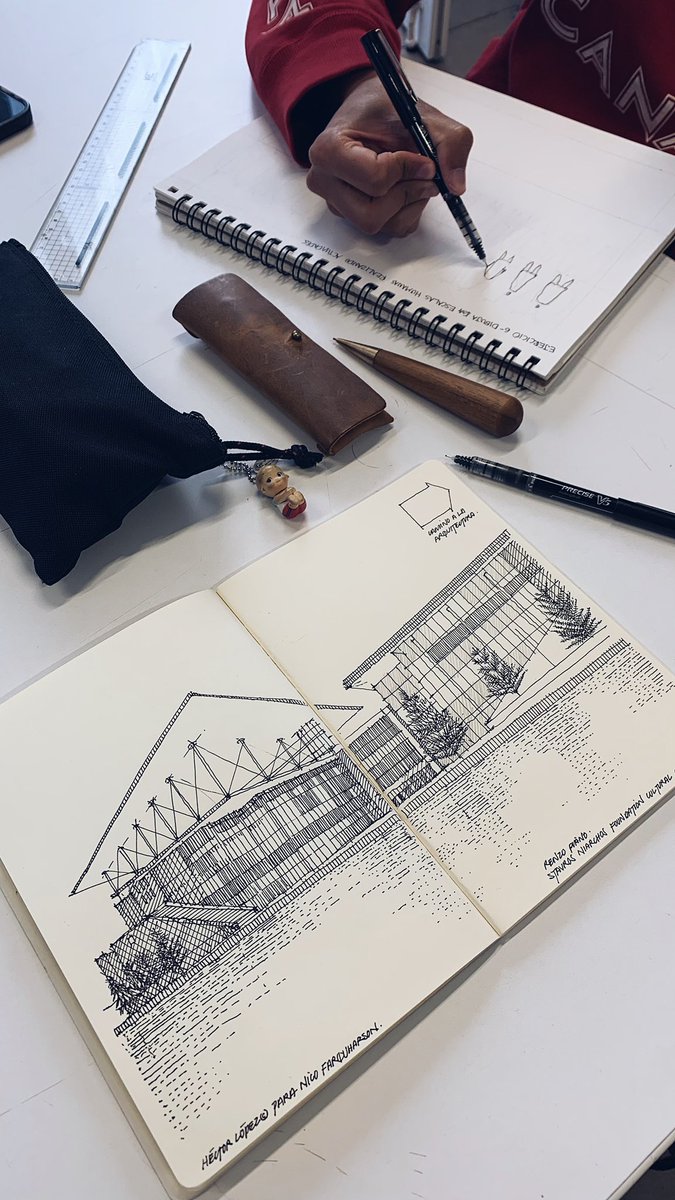 CANA
EJERCICIO 6- DIBUJA EN ESCALAS HUMANAS REALIZANDO ACTIVIDADES
PRECISE V5
CAMINO A LA
ARQUITECTURA.
RENZO PIANO
STAVROS NIARCHOS FOUNDATION CULTURAL
HÉCTOR LÓPEZ© PARA NICO FARQUHARSON.